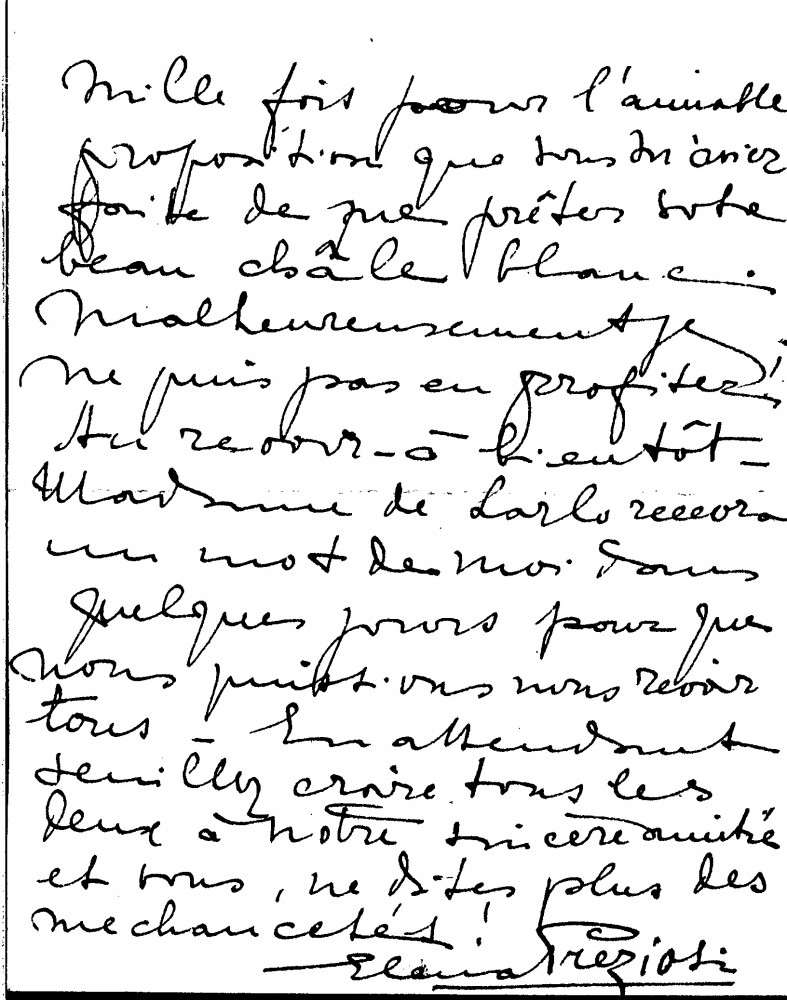 mille fois pour l'aimable
proposition que vous m'aviez
faite de me prêter votre
beau châle blanc.
Malheureusement je
ne puis pas en profiter!
Au revoir - à bientôt -
Madame de Larlo recevra
un mot de moi dans
quelques jours pour que
nous puissions nous revoir
tous - En attendant
veuillez croire tous les
deux à notre sincère amitié
et vous, ne dites plus des
mechancetés!
Elena Preziosi